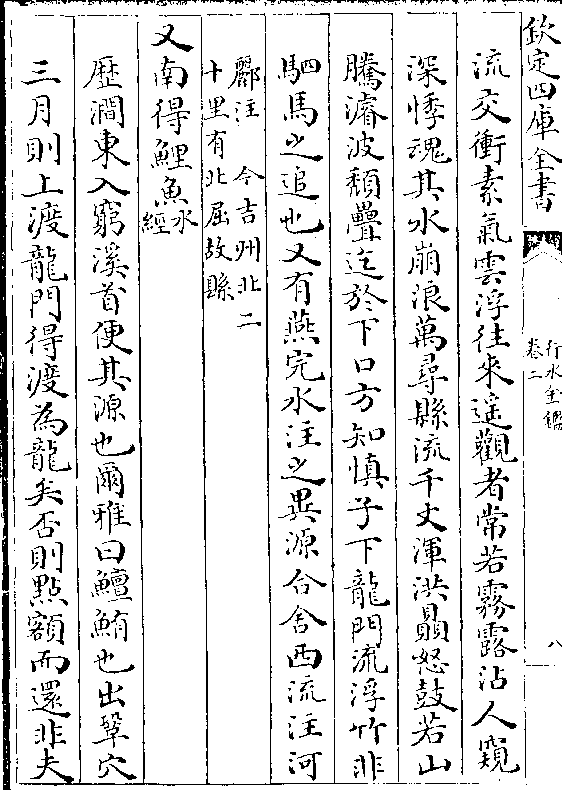 欽定四庫全書
行水金鑑
卷二
八
流交衝素氣雲浮往來遥觀者常若霧露沾人窺
深悸魂其水崩浪萬尋縣流千丈渾洪贔怒鼓若山
騰濬波頽疊迄於下口方知慎子下龍門流浮竹非
駟馬之追也又有燕完水注之異源合舍西流注河
酈注 今吉州北二
十里有北屈故縣
又南得鯉魚水經
歴澗東入窮溪首便其源也爾雅曰鱣鮪也出鞏穴
三月則上渡龍門得渡為龍矣否則點額而還非夫